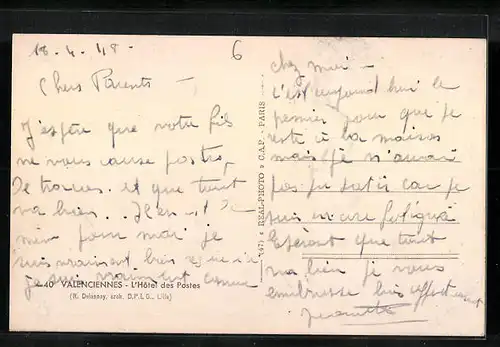 18-4-48-
6
Chers Parents -
J'espère que votre fils
ne vous cause pas trop
de tracas. et que tout
va bien.. Il en est de
mien pour moi je
suis vraiment bien
je suis vraiment comme
40 VALENCIENNES - L'Hôtel des Postes
(R. Delannoy, arch. D.P.L.G., Lille)
(47) « REAL-PHOTO » C.A.P. - PARIS
chez moi -
C'est aujourd'hui le
premier jour que je
reste à la maison
mais je n'aurai
pas pu sortir car je
suis encore fatiguée
Espérant que tout
va bien je vous
embrasse bien affectueusement